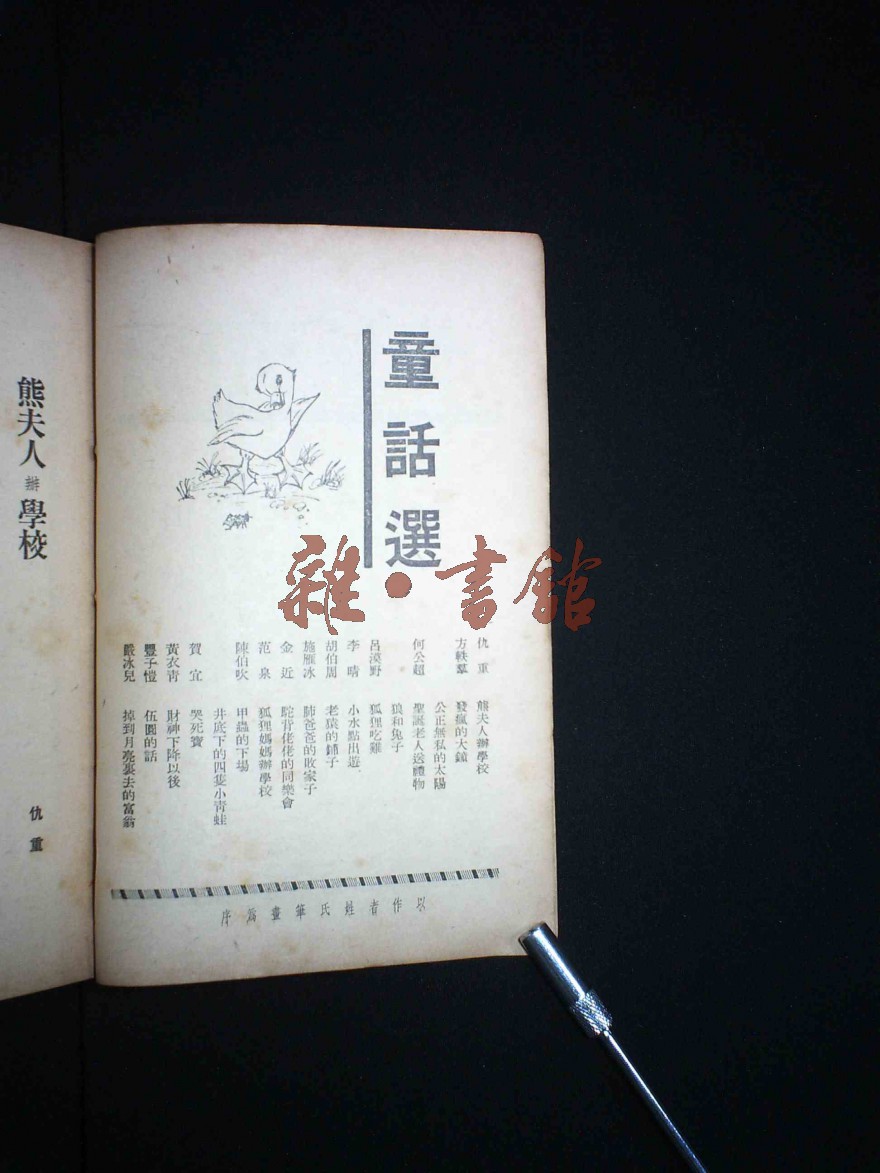 童話選
仇重 熊夫人辦學校
方軼羣 發瘋的大鎮
公正無私的太陽
何公超 聖誕老人送禮物
狼和兔子
呂漠野 狐狸吃雞
李晴 小水點出遊
胡伯周 老猿的鋪子
施雁冰 肺爸爸的敗家子
金近 駝背佬佬的同樂會
范泉 狐狸媽媽辦學校
陳伯吹 甲蟲的下場
井底下的四隻小青蛙
賀宜 哭死寶
黃衣青 財神下降以後
豐子愷 伍圓的話
嚴冰兒 掉到月亮裏去的富翁
以作者姓氏筆畫爲序
熊夫人辦學校
仇重
雜·書館